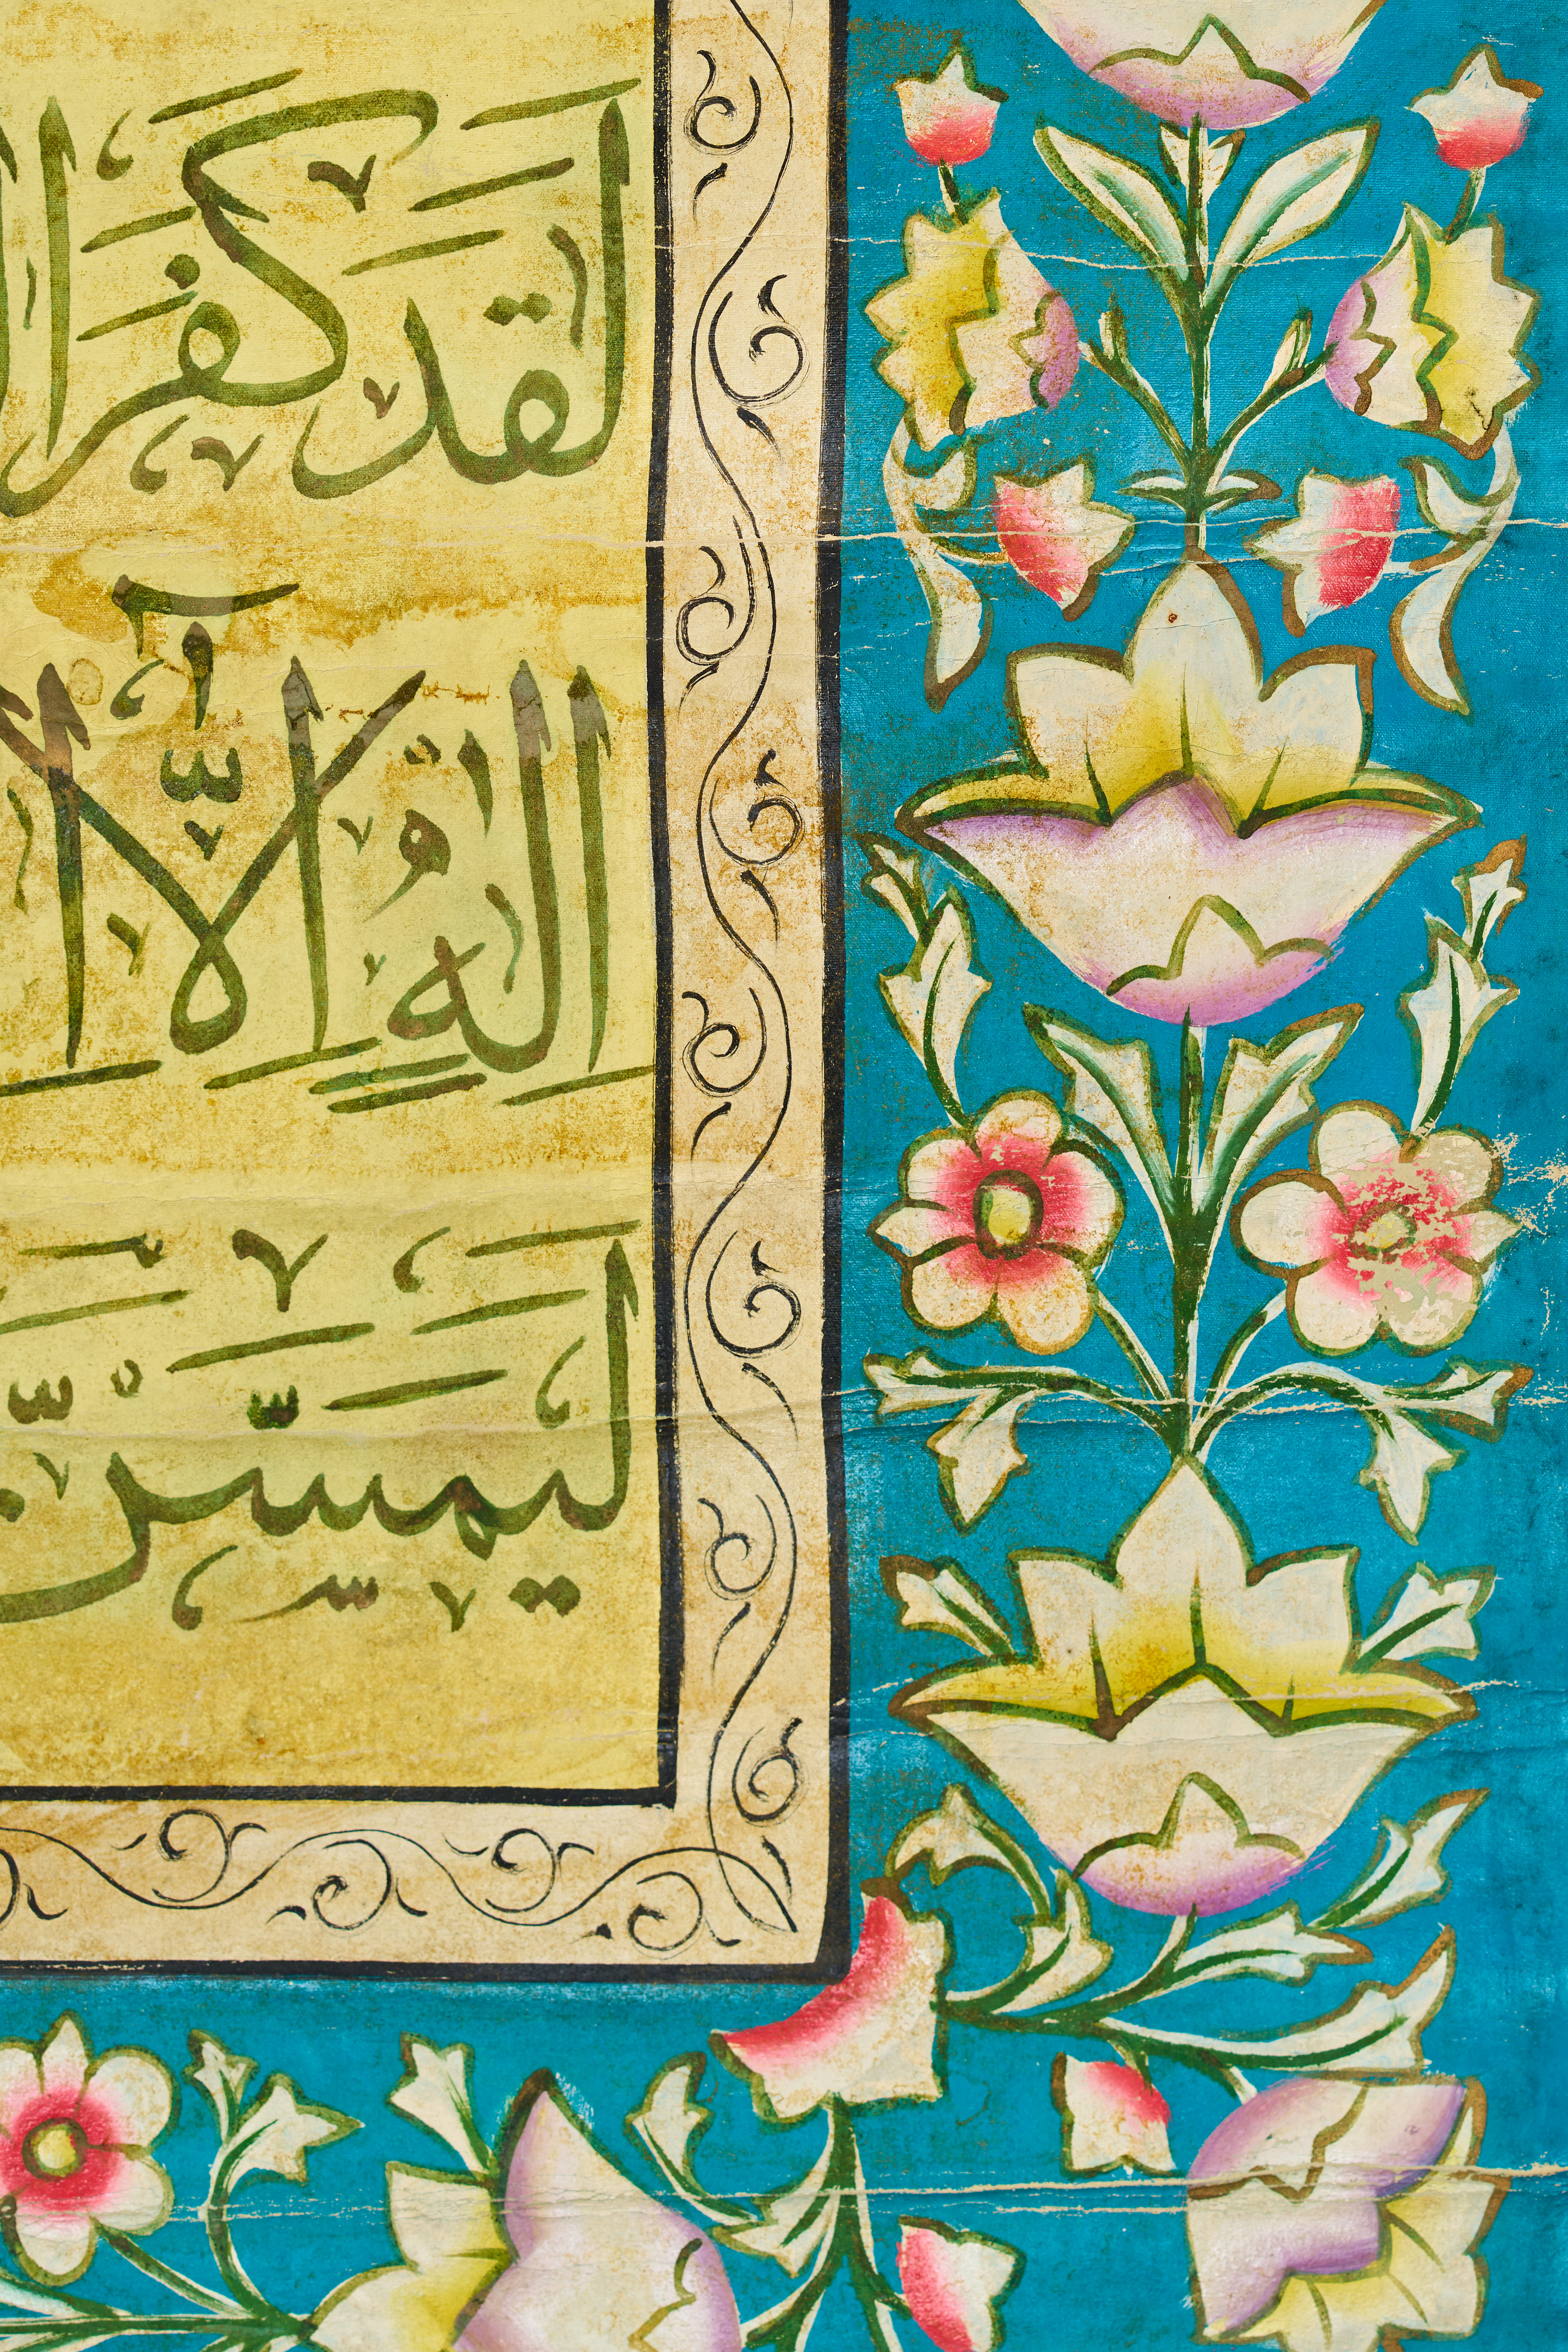 لَقَدْ كَفَرَ
اِلٰهٍ اِلَّآ
لَيَمَسَّنَّ